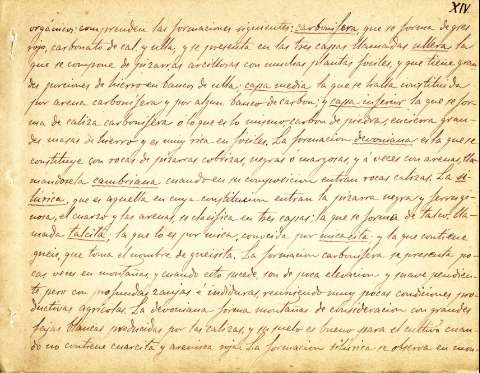 XIV
orgánicos; comprenden las formaciones siguientes: carbonífera, que se forma de gres
rojo, carbonato de cal y ulla, y se presenta en las tres capas llamadas ullera la
que se compone de pizarras arcillosas con muchas plantas fosiles, y que tiene gran
des porciones de hierro en bancos de ulla; capa media la que se halla constituida
por arena carbonifera y por algun banco de carbon; y capa inferior la que se for
ma de caliza carbonifera ó lo que es lo mismo carbon de piedra, encierra gran-
des masas de hierro y es muy rica en fosiles. La formacion devoniana es la que se
constituye con rocas de pizarras cobrizas, negras o margosas, y á veces con arenas, lla
mandosela cambriana cuando en su composicion entran rocas calizas. La si
lúrica, que es aquella en cuya constitucion entran la pizarra negra y ferrugi-
nosa, el cuarzo y las arenas, se clasifica en tres capas: la que se forma de talco, lla
mada talcita; la que lo es por mica, conocida por micacita y la que contiene
gneis, que toma el nombre de gneisita. La formacion carbonifera se presenta po
cas veces en montañas, y cuando esto sucede son de poca elevacion y suave pendien
te pero con profundas zanjas ó endiduras, reuniendo muy pocas condiciones pro
ductivas agricolas. La devoniana forma montañas de consideracion con grandes
fajas blancas producidas por las calizas, y su suelo es bueno para el cultivo cuan
do no contiene cuarcita y arenisca roja. La formacion silúrica se observa en mon